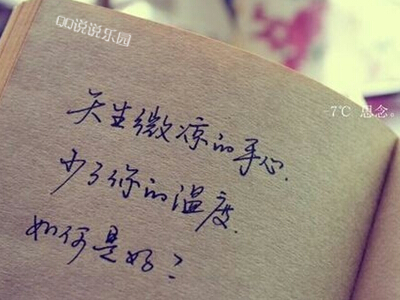 QQ说说乐园
-7℃ 思念。
天生微凉的手心.
少了你的温度.
如何是好?